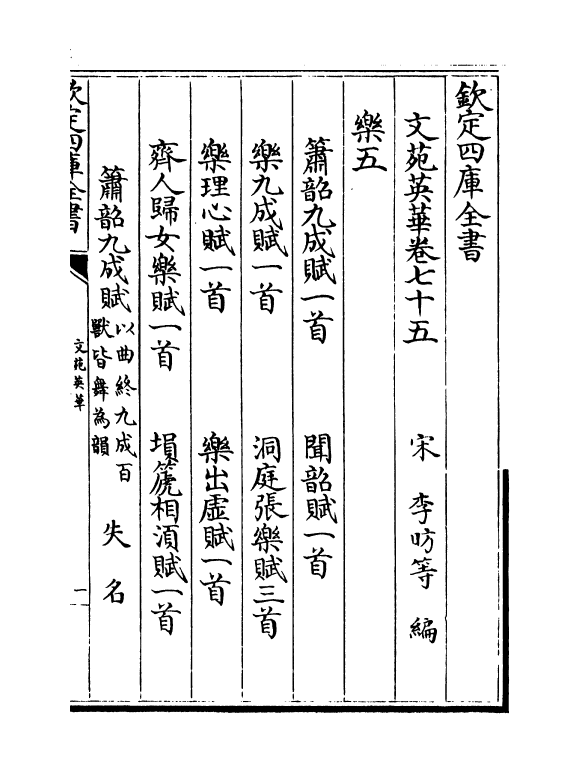 欽定四庫全書
文苑英華卷七十五
宋　李昉等　編
樂五
簫韶九成賦一首　聞韶賦一首
樂九成賦一首　洞庭張樂賦三首
樂理心賦一首　樂出虛賦一首
齊人歸女樂賦一首　塤篪相湏賦一首
簫韶九成賦　以曲終九成百獸皆舞為韻　失名
欽定四庫全書
文苑英華
一